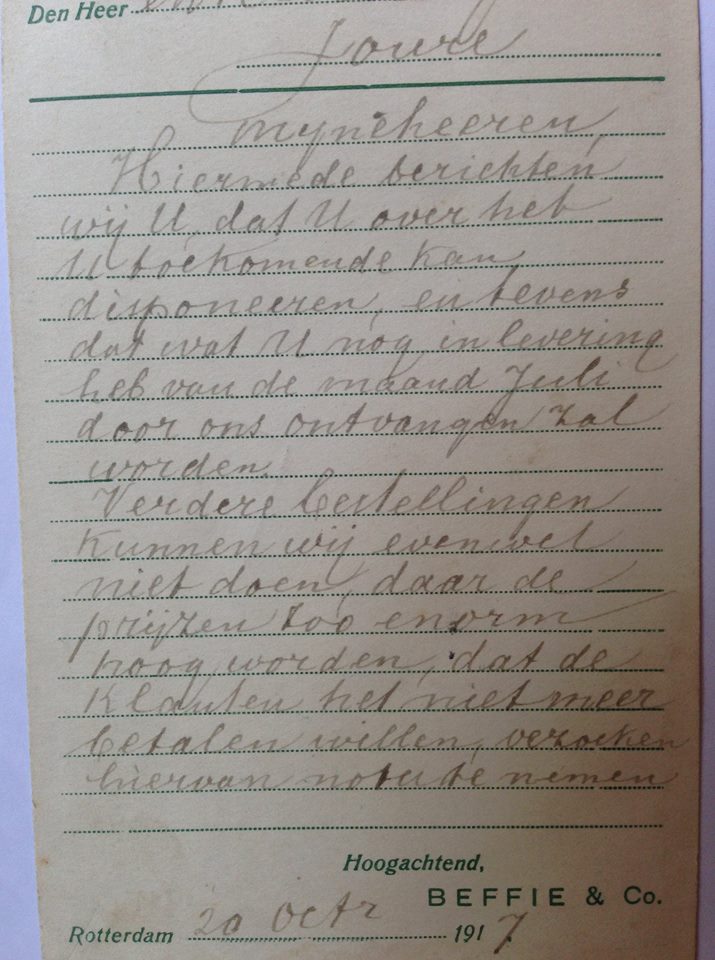 Den Heer
Joure
Mijneheeren,
Hiermede berichten
wij U, dat U over het
U toekomende kan
disponeeren, en tevens
dat wat U nog in levering
heb van de maand Juli
door ons ontvangen zal
worden.
Verdere bestellingen
kunnen wij evenwel
niet doen, daar de
prijzen zoo enorm
hoog worden, dat de
klanten het niet meer
betalen willen, verzoeken
hiervan nota te nemen
Hoogachtend,
BEFFIE & Co.
Rotterdam 20 Octr 1917